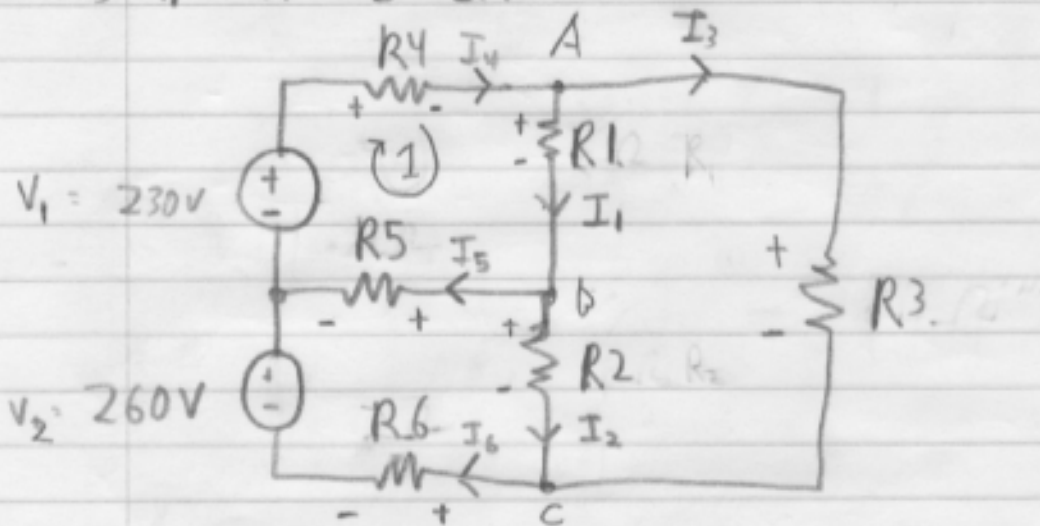 R4 I4 A I3
+ - + R1
1 -
V1 = 230V + - I1
R5 I5
- + B + R3
+ R2 -
V2 = 260V + - -
R6 I6 I2
- + C